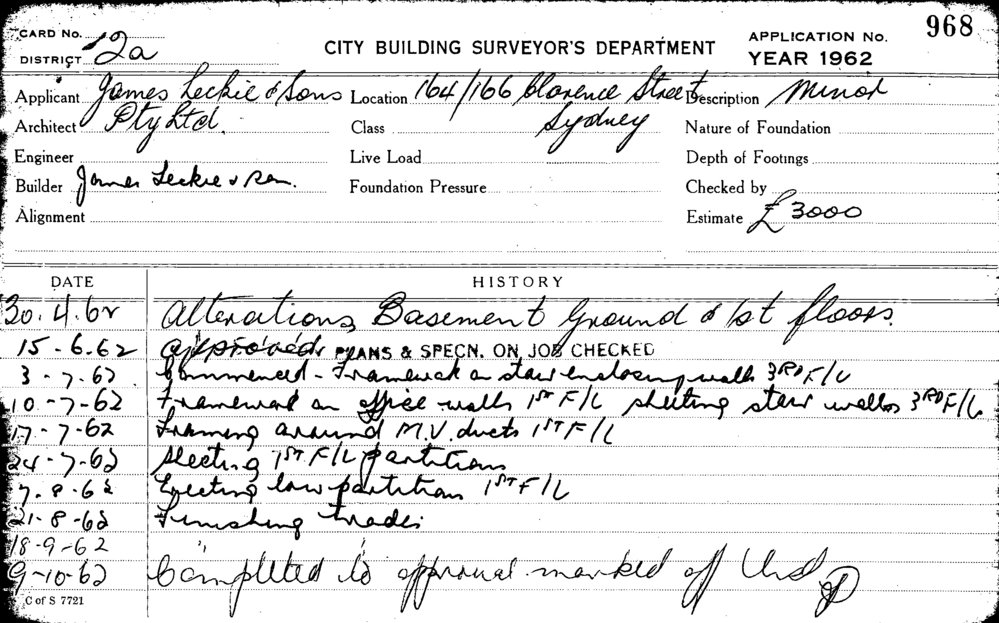 CARD No. 968
DISTRICT 12a CITY BUILDING SURVEYOR'S DEPARTMENT APPLICATION No.
YEAR 1962
Applicant James Leckie & Sons Location 164/166 Clarence Street Description Minor
Architect Pty Ltd. Class Sydney Nature of Foundation
Engineer Live Load Depth of Footings
Builder James Leckie & Son. Foundation Pressure Checked by
Alignment Estimate £3000
DATE HISTORY
30.4.62 Alterations, Basement Ground & 1st floors.
15-6.62 Approved PLANS & SPECN. ON JOB CHECKED
3-7.62 Commenced - Framework on stair enclosing walls 3RD F/L
10-7-62 Framework on office walls 1ST F/L sheeting stair walls 3RD F/L
17-7-62 Framing around M.V. ducts 1ST F/L
24-7-62 Sheeting 1ST F/L partitions
7.8.62 Erecting low partitions 1ST F/L
21-8-62 Finishing trades
18-9-62 "
9-10-62 Completed to approval marked off
C of S 7721